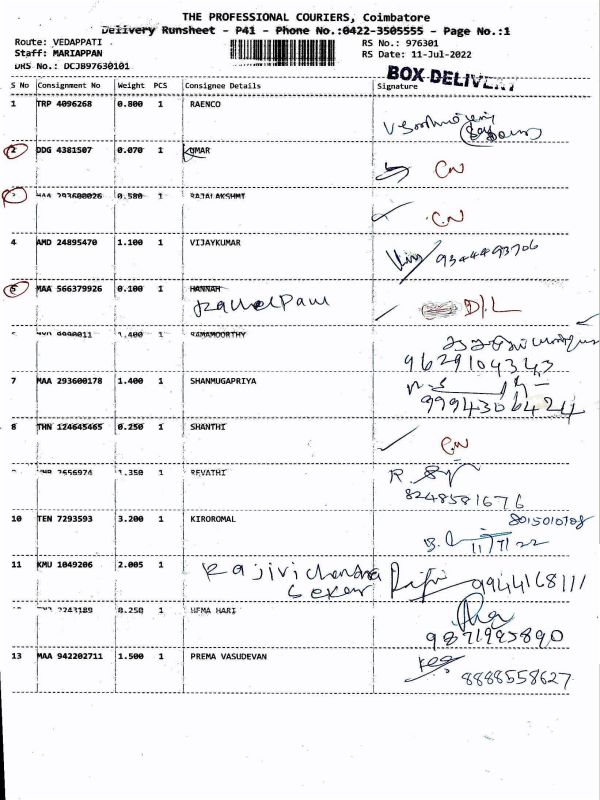 THE PROFESSIONAL COURIERS, Coimbatore
Delivery Runsheet - P41 - Phone No.:0422-3505555 - Page No.:1
Route: VEDAPPATI RS No.: 976301
Staff: MARIAPPAN RS Date: 11-Jul-2022
DRS No.: DCJB97630101
BOX DELIVERY
S No Consignment No Weight PCS Consignee Details Signature
1 TRP 4096268 0.800 1 RAENCO
2 DDG 4381507 0.070 1 KUMAR
CN
MAA 293600026 0.580 1 RAJALAKSHMI
CN
4 AMD 24895470 1.100 1 VIJAYKUMAR
9344493706
5 MAA 566379926 0.100 1 HANNAH
Rachel Paul D/L
1.400 1 RAMAMOORTHY
9629104343
7 MAA 293600178 1.400 1 SHANMUGAPRIYA
9994306424
8 THN 124645465 0.250 1 SHANTHI
CN
7656974 1.350 1 REVATHI
8248581676
10 TEN 7293593 3.200 1 KIROROMAL
8015010708
11/7/22
11 KMU 1049206 2.005 1 Rajivichandra
Seker 9944168111
2243189 0.250 1 HEMA HARI
9871985890
13 MAA 942202711 1.500 1 PREMA VASUDEVAN
8888558627